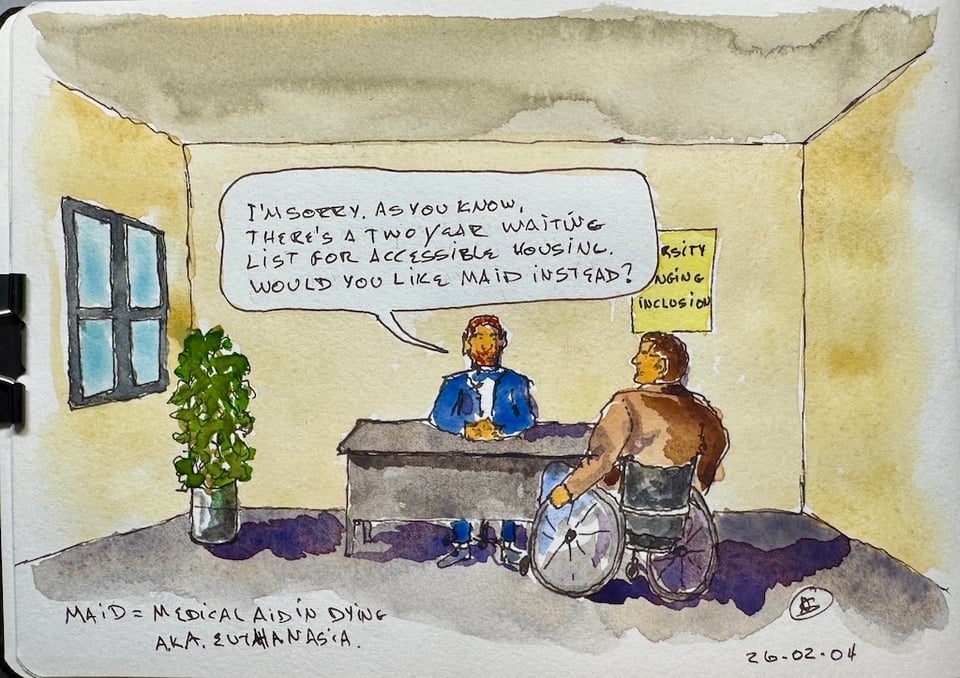 I'M SORRY. AS YOU KNOW,
THERE'S A TWO YEAR WAITING
LIST FOR ACCESSIBLE HOUSING.
WOULD YOU LIKE MAID INSTEAD?
RSITY
NGING
INCLUSION
MAID = MEDICAL AID IN DYING
A.K.A. EUTHANASIA.
26-02-04